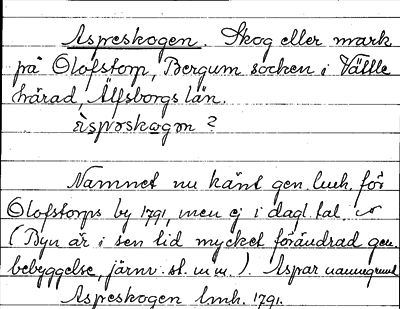 Aspeskogen. Skog eller mark
på Olofstorp, Bergum socken i Vättle
härad, Älfsborgs län.
àspəskωgən ?
Namnet nu känt gen. lmh. för
Olofstorps by 1791, men ej i dagl. tal.
(Byn är i sen tid mycket förändrad gen.
bebyggelse, järnv. st. m.m.). Aspar namngrund
Aspeskogen lmh. 1791.